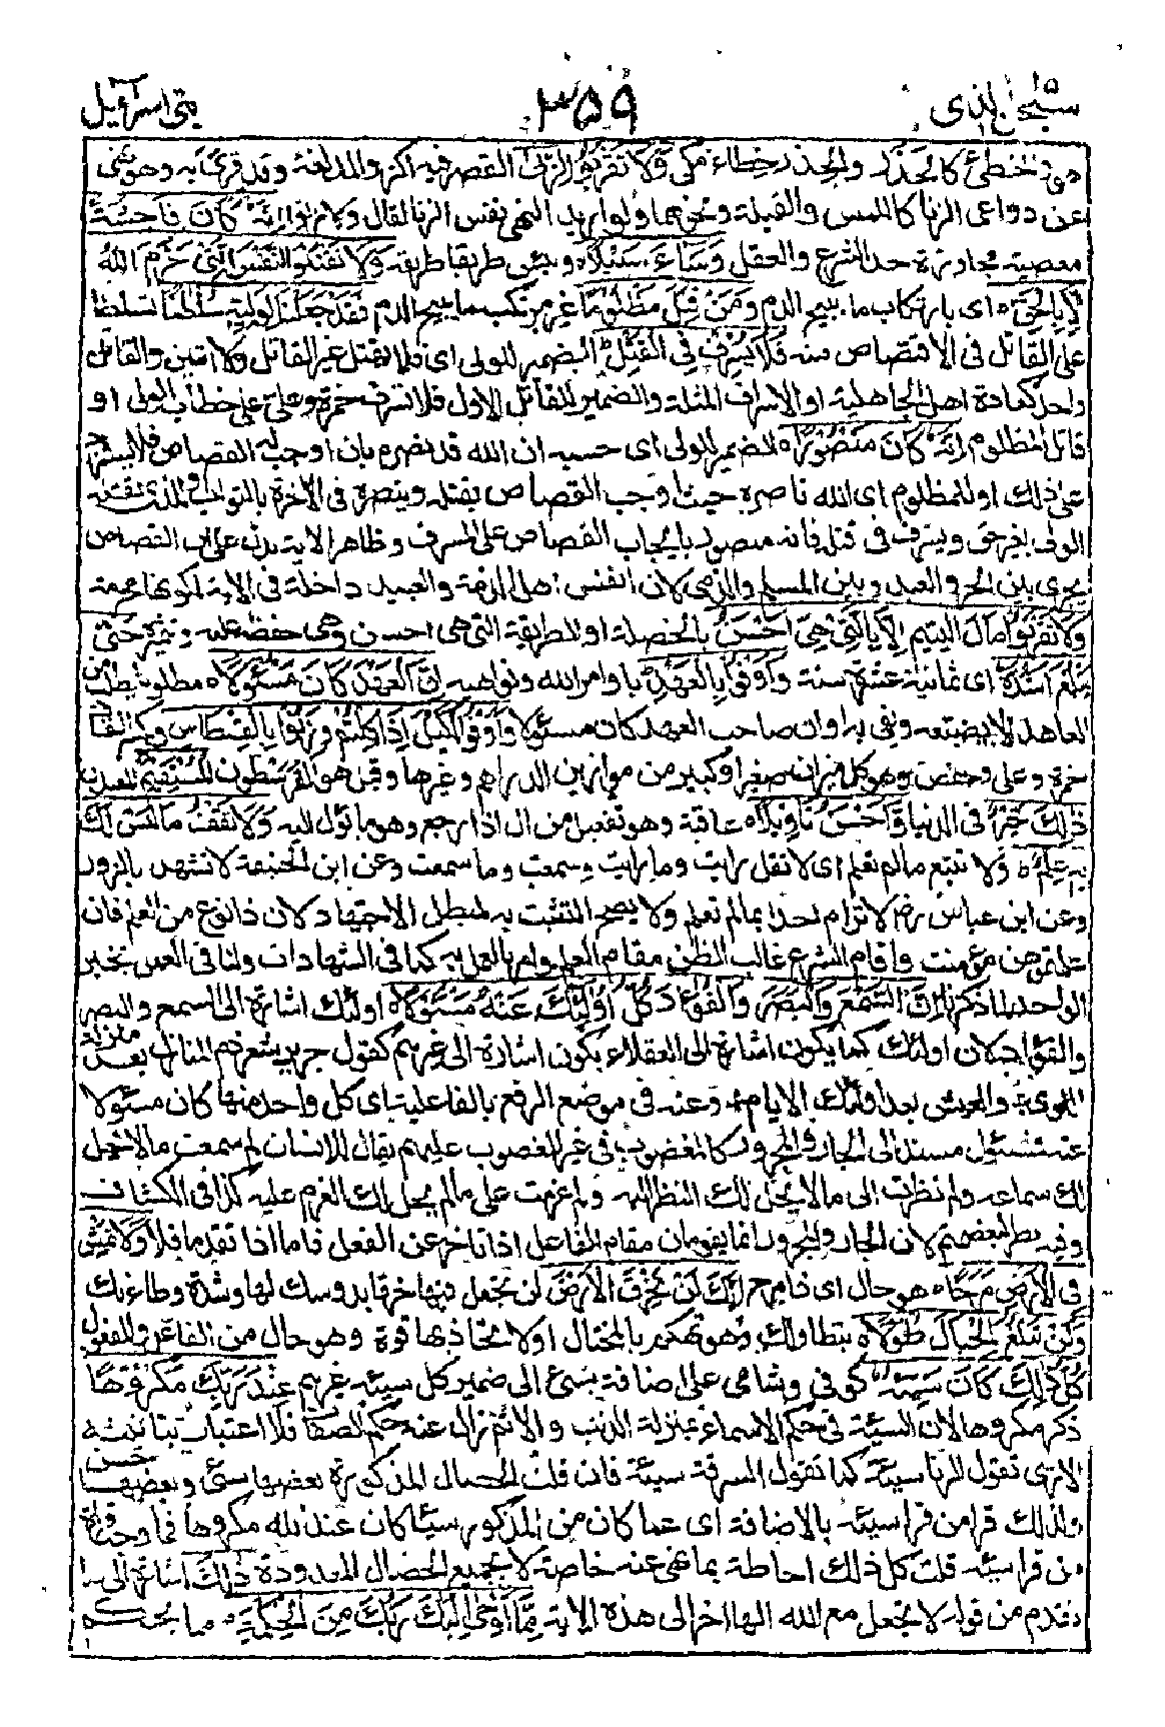 سبحن الذى
٣٥٩
بنى اسرآئيل
وهو تخطئ كالحذر والحذر خطاء مكى وَلَا تَقْرَبُوا الزِّنَى القصر فيه اكثر والمد لغة وقد قرئ به وهو نهى
عن دواعى الزنا كالمس والقبلة ونحوهما ولو اريد النهى نفس الزنا لقال ولا تزنوا اِنَّهٗ كَانَ فَاحِشَةً
معصية مجاوزة حد الشرع والعقل وَسَآءَ سَبِيْلًا وبئس طريقا طريقه وَلَا تَقْتُلُوا النَّفْسَ الَّتِىْ حَرَّمَ اللّٰهُ
اِلَّا بِالْحَقِّ اى بارتكاب ما يبيح الدم وَمَنْ قُتِلَ مَظْلُوْمًا غير مرتكب ما يبيح الدم فَقَدْ جَعَلْنَا لِوَلِيِّهٖ سُلْطٰنًا تسلطا
على القاتل فى الاقتصاص منه فَلَا يُسْرِفْ فِى الْقَتْلِ الضمير للولى اى فلا يقتل غير القاتل ولا اثنين والقاتل
واحد كعادة اهل الجاهلية او الاسراف المثلة والضمير للقاتل الاول فلا تسرف حمزة وعلى على خطاب الولى او
قاتل المظلوم اِنَّهٗ كَانَ مَنْصُوْرًا الضمير للولى اى حسبه ان الله قد نصره بان اوجب له القصاص فلا يستزد
على ذلك او للمظلوم اى الله ناصره حيث اوجب القصاص بقتله وينصره فى الاخرة بالثواب او للذى يقتله
الولى بغير حق ويسرف فى قتله فانه منصور بايجاب القصاص على المسرف وظاهر الاية يدل على ان القصاص
يجرى بين الحر والعبد وبين المسلم والذمى لان انفس اهل الذمة والعبيد داخلة فى الاية لكونها محرمة
وَلَا تَقْرَبُوْا مَالَ الْيَتِيْمِ اِلَّا بِالَّتِىْ هِىَ اَحْسَنُ بالخصلة او الطريقة التى هى احسن وهى حفظه عليه وتثميره حَتّٰى
يَبْلُغَ اَشُدَّهٗ اى ثمانية عشرة سنة وَاَوْفُوْا بِالْعَهْدِ باوامر الله ونواهيه اِنَّ الْعَهْدَ كَانَ مَسْئُوْلًا مطلوبا يطلب من
العاهد ان لا يضيعه ويفى به او ان صاحب العهد كان مسئولا وَاَوْفُوا الْكَيْلَ اِذَا كِلْتُمْ وَزِنُوْا بِالْقِسْطَاسِ بكسر القاف
حمزة وعلى وحفص وهو كل ميزان صغير او كبير من موازين الدراهم وغيرها وقيل هو القرسطون الْمُسْتَقِيْمِ المعتدل
ذٰلِكَ خَيْرٌ فى الدنيا وَاَحْسَنُ تَاْوِيْلًا عاقبة وهو تفعيل من ال اذا رجع وهو ما يؤل اليه وَلَا تَقْفُ مَا لَيْسَ لَكَ
بِهٖ عِلْمٌ ولا تتبع ما لم تعلم اى لا تقل رايت وما رايت وسمعت وما سمعت وعن ابن الحنفية لا تشهد بالزور
وعن ابن عباس رض لا ترم احدا بما لم تعلم ولا يصح التشبث به لمبطل الاجتهاد لان ذا نوع من العلم فان
علمتموهن مؤمنت واقام الشرع غالب الظن مقام العلم وامر بالعمل به كما فى الشهادات ولنا فى العمل بخبر
الواحد لما ذكرنا اِنَّ السَّمْعَ وَالْبَصَرَ وَالْفُؤَادَ كُلُّ اُولٰٓئِكَ كَانَ عَنْهُ مَسْئُوْلًا اولئك اشارة الى السمع والبصر
والفؤاد لان اولئك كما يكون اشارة الى العقلاء يكون اشارة الى غيرهم كقول جرير شعر ذم المنازل بعد منزلة
اللوى والعيش بعد اولئك الايام وعنه فى موضع الرفع بالفاعلية اى كل واحد منها كان مسئولا
عنه فمسئول مسند الى الجار والمجرور كالمغضوب فى غير المغضوب عليهم يقال للانسان لم سمعت ما لا يحل
لك سماعه ولم نظرت الى ما لا يحل لك النظر اليه ولم عزمت على ما لم يحل لك العزم عليه كذا فى الكشاف
وفيه نظر لبعضهم لان الجار والمجرور انما يقومان مقام الفاعل اذا تاخر عن الفعل فاما اذا تقدما فلا وَلَا تَمْشِ
فِى الْاَرْضِ مَرَحًا هو حال اى ذا مرح اِنَّكَ لَنْ تَخْرِقَ الْاَرْضَ لن تجعل فيها خرقا بدوسك لها وشدة وطاءتك
وَلَنْ تَبْلُغَ الْجِبَالَ طُوْلًا بتطاولك وهو تهكم بالمختال او لا تحاذيها قوة وهو حال من الفاعل او المفعول
كُلُّ ذٰلِكَ كَانَ سَيِّئُهٗ كوفى وشامى على اضافة سيئ الى ضمير كل سيئة غيرهم عِنْدَ رَبِّكَ مَكْرُوْهًا
ذكر مكروها لان السيئة فى حكم الاسماء بمنزلة الذنب والاثم زال عنه حكم الصفات فلا اعتبار بتانيثه
الا ترى تقول الزنا سيئة كما تقول السرقة سيئة فان قلت الخصال المذكورة بعضها سيئ وبعضها حسن
ولذلك قرا من قرا سيئه بالاضافة اى ما كان من المذكور سيئا كان عند الله مكروها فما وجه قراءة
من قرا سيئة قلت كل ذلك احاطة بما نهى عنه خاصة لا بجميع الخصال المعدودة ذٰلِكَ اشارة الى ما
تقدم من قوله لا تجعل مع الله الها اخر الى هذه الاية مِمَّآ اَوْحٰى اِلَيْكَ رَبُّكَ مِنَ الْحِكْمَةِ مما يحكم